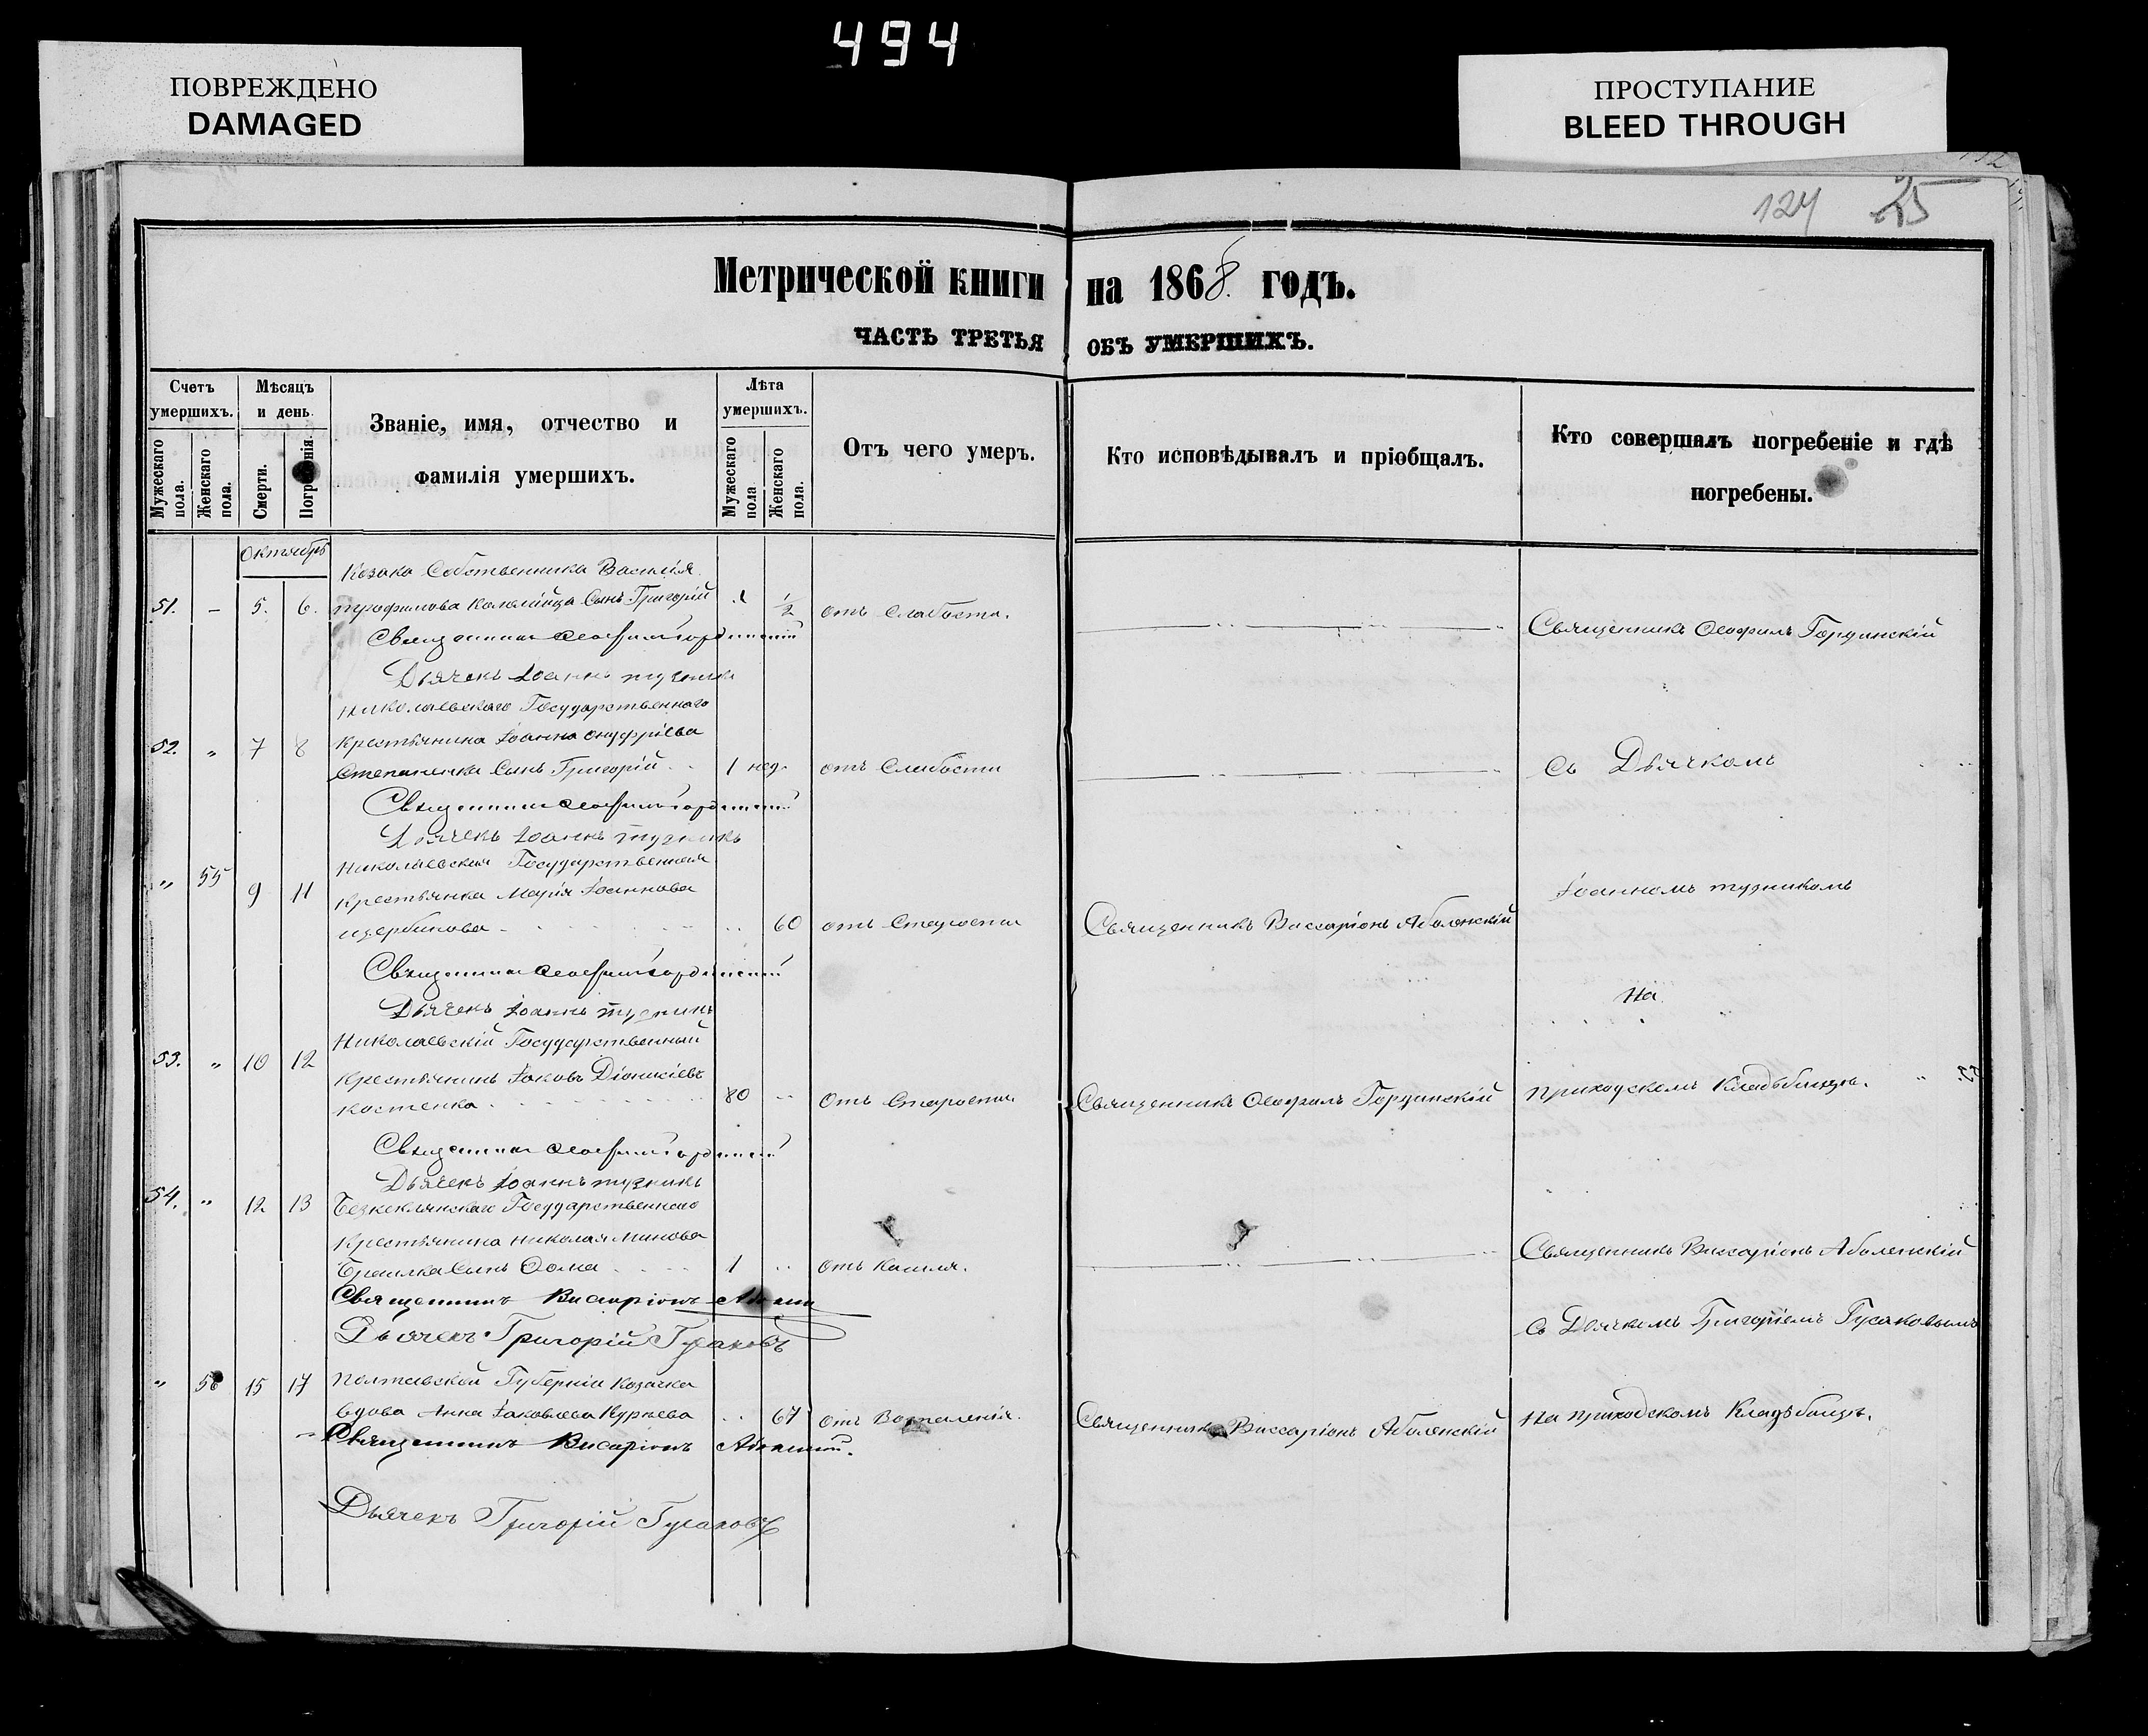 494
ПОВРЕЖДЕНО
DAMAGED
ПРОСТУПАНИЕ
BLEED THROUGH
124 25
Метрической книги на 1868. годъ.
ЧАСТЬ ТРЕТЬЯ ОБЪ УМЕРШИХЪ.
Счетъ умершихъ.
Мужескаго пола.
Женскаго пола.
Мѣсяцъ и день.
Смерти.
Званіе, имя, отчество и фамилія умершихъ.
Лѣта умершихъ.
Мужескаго пола
Женскаго пола.
Отъ чего умеръ.
Кто исповѣдывалъ и пріобщалъ.
Кто совершалъ погребеніе и гдѣ погребены.
Октябрь
Козака Собственника Василія
51. – 5. 6. Трофимова Коломійца Сынъ Григорій 1/2 отъ Слабости. Священникъ Ѳеофилъ Гординскій
Священникъ Ѳеофилъ Гординскій
Дьячекъ Іоаннъ
Николаевскаго Государственнаго
52. " 7 8 Крестьянина Іоанна Онуфріева
Степаненка Сынъ Григорій 1 нед. отъ Слабости Съ Дьячкомъ
Священникъ Ѳеофилъ Гординскій
Дьячекъ Іоаннъ
Николаевская Государственная
" 55 9 11 Крестьянка Марія Іоаннова Іоанномъ
Щербинова 60 отъ Старости Священникъ Виссаріонъ Аболенскій
Священникъ Ѳеофилъ Гординскій
Дьячекъ Іоаннъ
На
Николаевскій Государственный
53. " 10 12 Крестьянинъ Іаковъ Діонисіевъ
Костенко 80 Отъ Старости Священникъ Ѳеофилъ Гординскій приходскомъ Кладбищѣ.
Священникъ Ѳеофилъ Гординскій
Дьячекъ Іоаннъ
54. " 12 13 Государственнаго
Крестьянина Николая Минова
Сынъ Ѳома 1 отъ Кашля. Священникъ Виссаріонъ Аболенскій
Священникъ Висаріонъ
Дьячекъ Григорій Гусаковъ Съ Дьячкомъ Григоріемъ Гусаковымъ
" 56 15 17 Полтавской Губерніи Козачка
вдова Анна Іаковлева 67 отъ Воспаленія. Священникъ Виссаріонъ Аболенскій На приходскомъ Кладбищѣ.
Священникъ Висаріонъ
Дьячекъ Григорій Гусаковъ